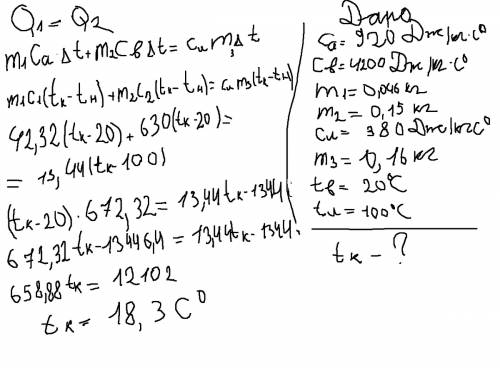 Q₁ = Q₂
m₁Ca Δt + m₂Cв Δt = cм m₃ Δt
m₁c₁(tк-tн)+m₂c₂(tк-tн)=cм m₃(tк-tн)
42,32(tк-20)+630(tк-20)=
= 13,44(tк-100)
(tк-20)·672,32 = 13,44tк-1344
672,32tк-13446,4 = 13,44tк-1344
658,88tк = 12102
tк = 18,3 C⁰
Дано
Ca = 920 Дж/кг·C⁰
Cв = 4200 Дж/кг·C⁰
m₁ = 0,046 кг
m₂ = 0,15 кг
Cм = 380 Дж/кгC⁰
m₃ = 0,16 кг
tв = 20°C
tм = 100°C
tк - ?